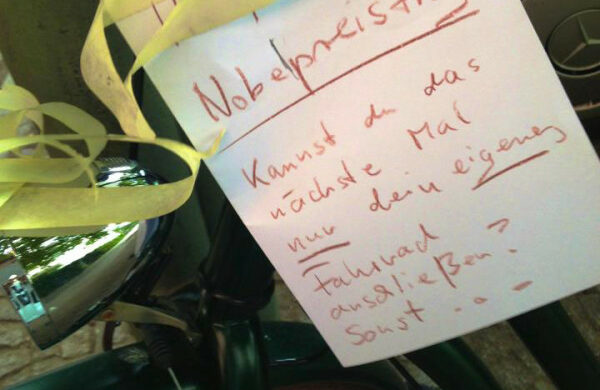 Nobelpreistr
Kannst du das
nächste Mal
nur dein eigenes
Fahrrad
anschließen?
Sonst...